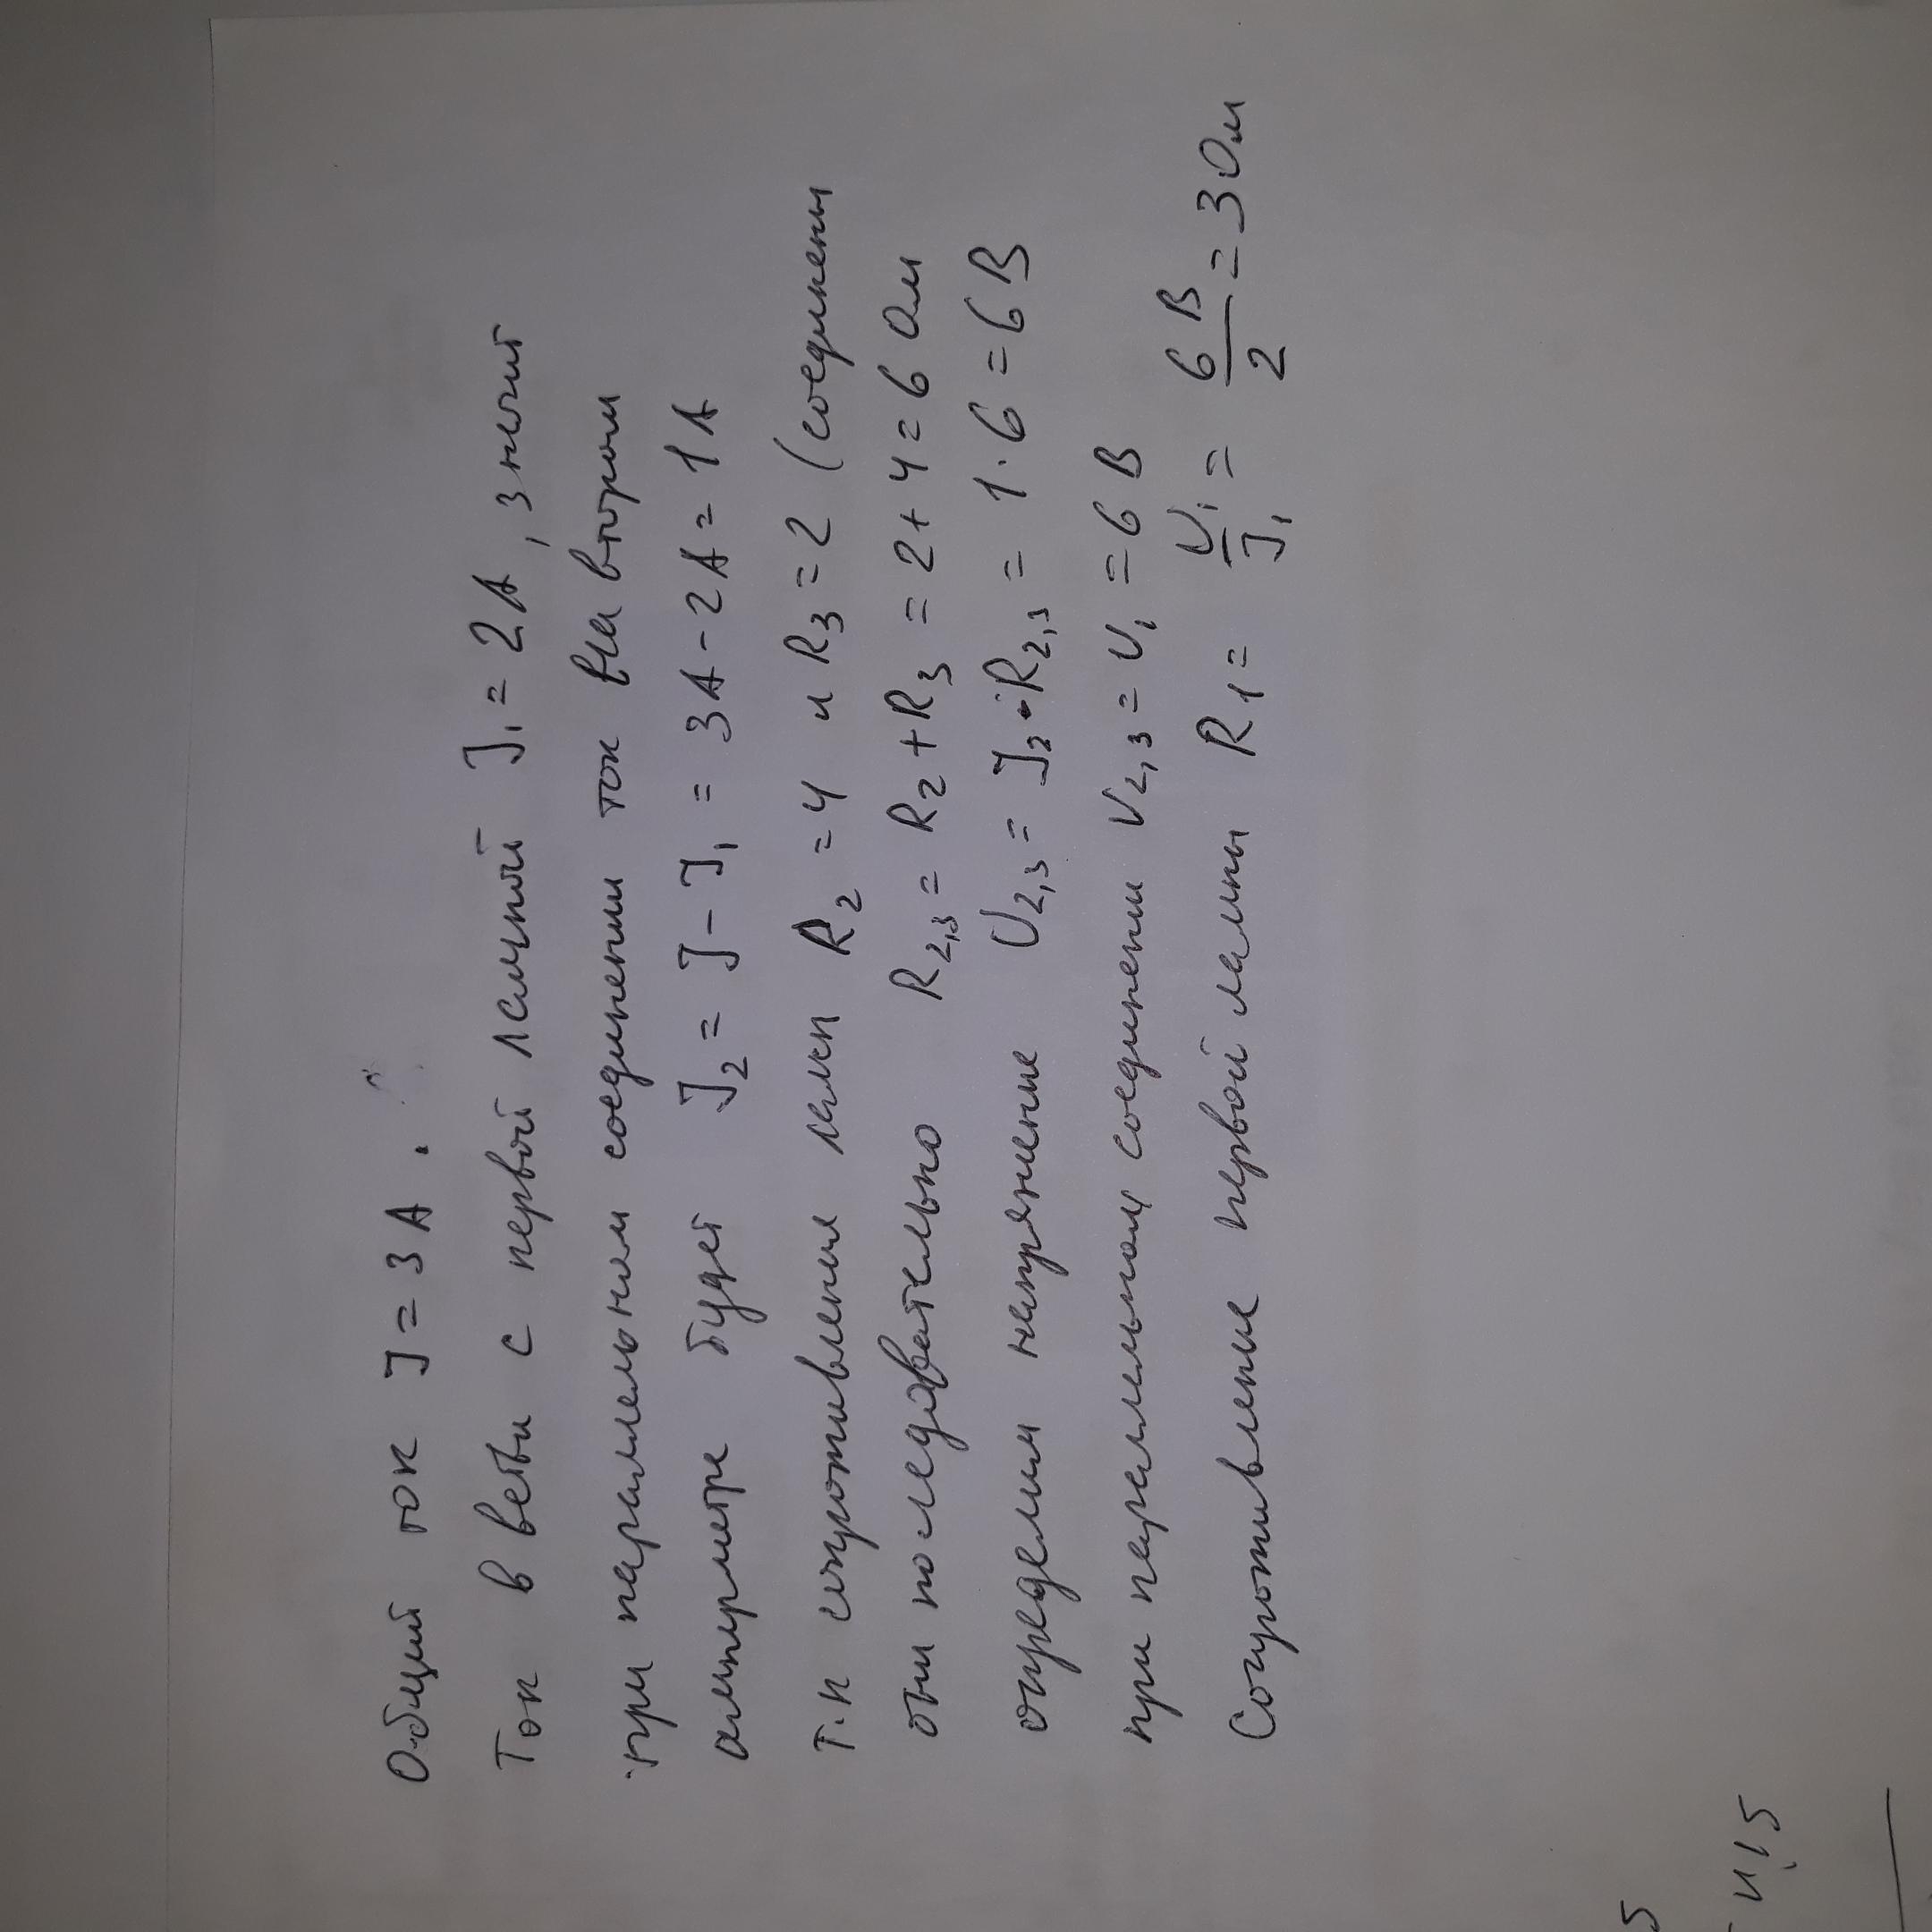 Общий ток J = 3 А.
Ток в ветви с первой лампой J₁ = 2А, значит
при параллельном соединении ток на втором
амперметре будет J₂ = J - J₁ = 3А - 2А = 1А
т.к сопротивления ламп R₂ = 4 и R₃ = 2 (соединены
они последовательно R₂,₃ = R₂ + R₃ = 2 + 4 = 6 Ом
определим напряжение U₂,₃ = J₂ · R₂,₃ = 1 · 6 = 6 В
при параллельном соединении U₂,₃ = U₁ = 6 В
Сопротивление первой лампы R₁ = U₁/J₁ = 6 В/2 = 3 Ом
5